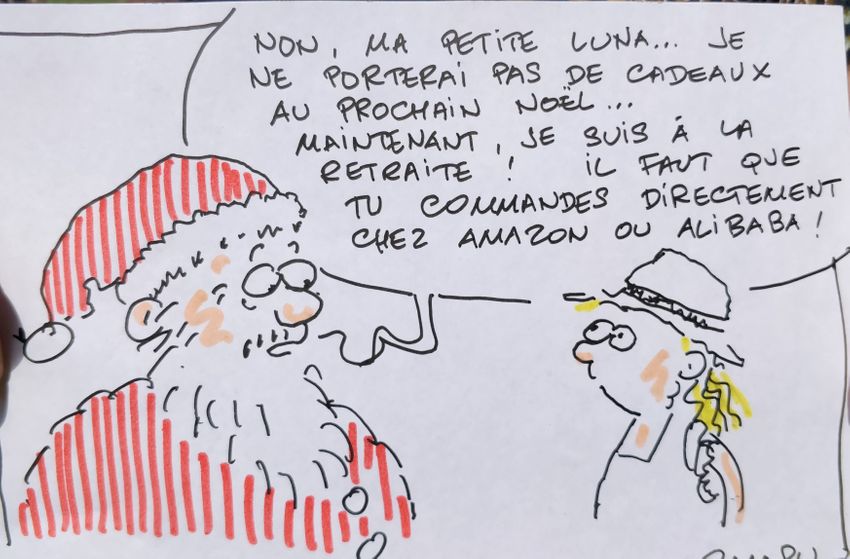 NON, MA PETITE LUNA... JE
NE PORTERAI PAS DE CADEAUX
AU PROCHAIN NOËL...
MAINTENANT, JE SUIS À LA
RETRAITE ! IL FAUT QUE
TU COMMANDES DIRECTEMENT
CHEZ AMAZON OU ALIBABA !